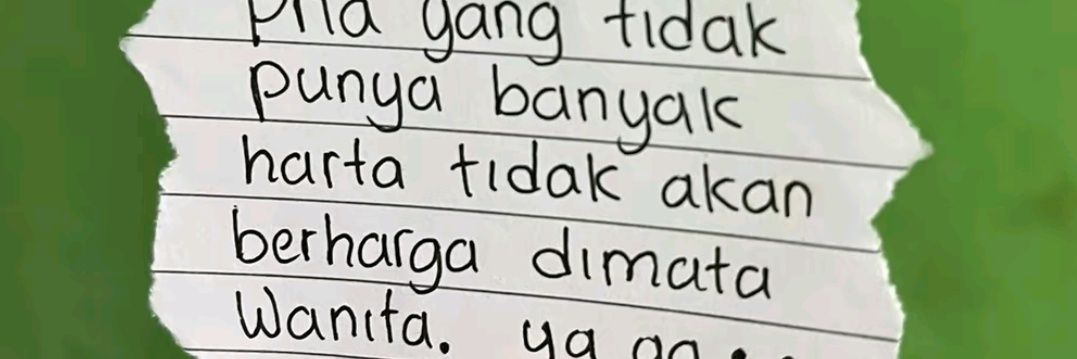 pria yang tidak
punya banyak
harta tidak akan
berharga dimata
Wanita. ya